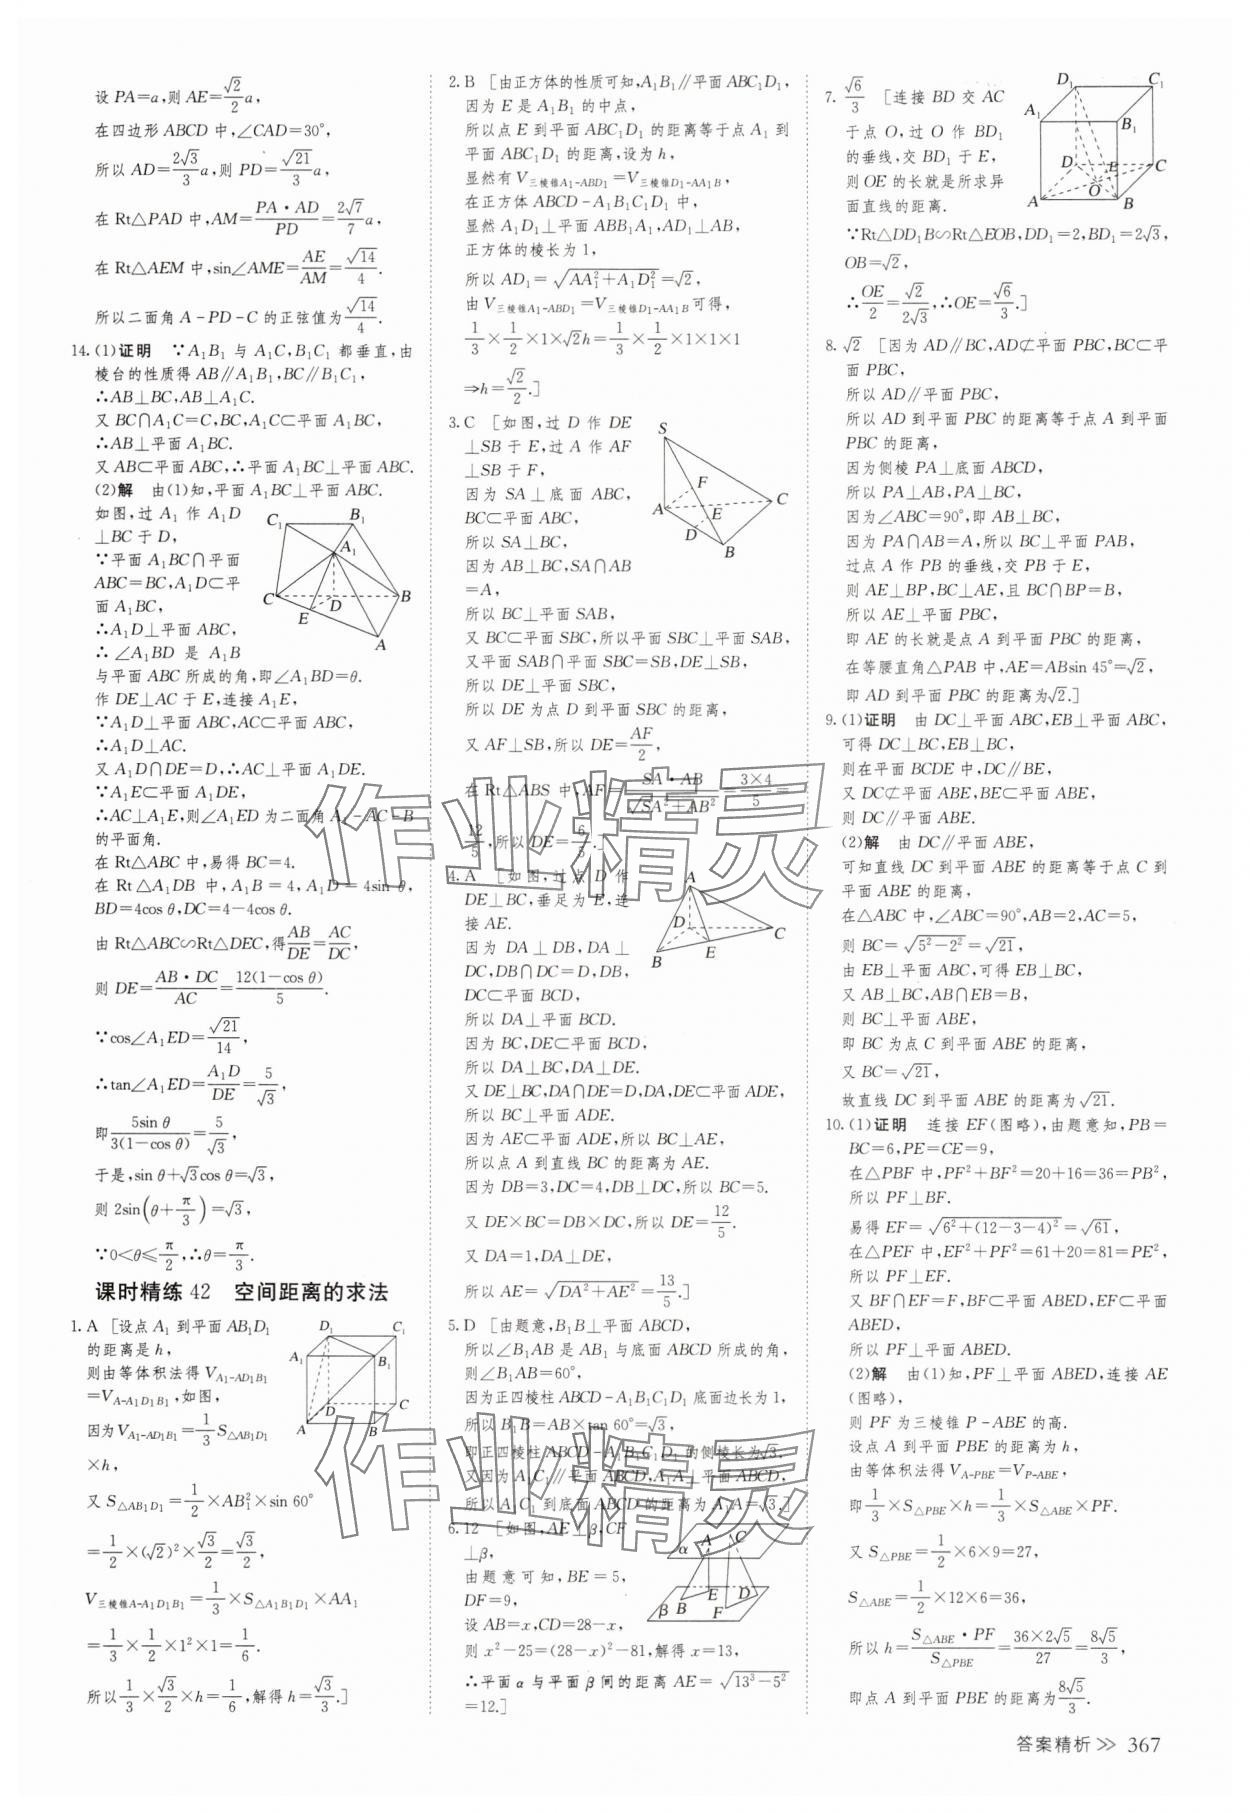 设 PA=a,则 AE=√2/2 a,
在四边形 ABCD 中,∠CAD=30°,
所以 AD=2√3/3 a,则 PD=√21/3 a,
在 Rt△PAD 中,AM=PA·AD/PD=2√7/7 a,
在 Rt△AEM 中,sin∠AME=AE/AM=√14/4.
所以二面角 A-PD-C 的正弦值为√14/4.
14.(1)证明 ∵A₁B₁ 与 A₁C,B₁C₁ 都垂直,由
棱台的性质得 AB∥A₁B₁,BC∥B₁C₁,
∴AB⊥BC,AB⊥A₁C.
又 BC∩A₁C=C,BC,A₁C⊂平面 A₁BC,
∴AB⊥平面 A₁BC.
又 AB⊂平面 ABC,∴平面 A₁BC⊥平面 ABC.
(2)解 由(1)知,平面 A₁BC⊥平面 ABC.
如图,过 A₁ 作 A₁D
⊥BC 于 D,
∵平面 A₁BC∩平面
ABC=BC,A₁D⊂平
面 A₁BC,
∴A₁D⊥平面 ABC,
∴∠A₁BD 是 A₁B
与平面 ABC 所成的角,即∠A₁BD=θ.
作 DE⊥AC 于 E,连接 A₁E,
∵A₁D⊥平面 ABC,AC⊂平面 ABC,
∴A₁D⊥AC.
又 A₁D∩DE=D,∴AC⊥平面 A₁DE.
∵A₁E⊂平面 A₁DE,
∴AC⊥A₁E,则∠A₁ED 为二面角 A₁-AC-B
的平面角.
在 Rt△ABC 中,易得 BC=4.
在 Rt△A₁DB 中,A₁B=4,A₁D=4sin θ,
BD=4cos θ,DC=4-4cos θ.
由 Rt△ABC∽Rt△DEC,得AB/DE=AC/DC,
则 DE=AB·DC/AC=12(1-cos θ)/5.
∵cos∠A₁ED=√21/14,
∴tan∠A₁ED=A₁D/DE=5/√3,
即5sin θ/3(1-cos θ)=5/√3,
于是,sin θ+√3cos θ=√3,
则 2sin(θ+π/3)=√3,
∵0<θ≤π/2,∴θ=π/3.
C₁ B₁ A₁ C D B E A
课时精练 42 空间距离的求法
1.A [设点 A₁ 到平面 AB₁D₁
的距离是 h,
则由等体积法得 V_{A₁-AD₁B₁}
=V_{A-A₁D₁B₁},如图,
因为 V_{A₁-AD₁B₁}=1/3 S_{△AB₁D₁}
×h,
又 S_{△AB₁D₁}=1/2×AB₁²×sin 60°
=1/2×(√2)²×√3/2=√3/2,
V_{三棱锥A-A₁D₁B₁}=1/3×S_{△A₁B₁D₁}×AA₁
=1/3×1/2×1²×1=1/6.
所以1/3×√3/2×h=1/6,解得 h=√3/3.]
D₁ C₁ A₁ B₁ D C A B
2.B [由正方体的性质可知,A₁B₁∥平面 ABC₁D₁,
因为 E 是 A₁B₁ 的中点,
所以点 E 到平面 ABC₁D₁ 的距离等于点 A₁ 到
平面 ABC₁D₁ 的距离,设为 h,
显然有 V_{三棱锥A₁-ABD₁}=V_{三棱锥D₁-AA₁B},
在正方体 ABCD-A₁B₁C₁D₁ 中,
显然 A₁D₁⊥平面 ABB₁A₁,AD₁⊥AB,
正方体的棱长为 1,
所以 AD₁=√(AA₁²+A₁D₁²)=√2,
由 V_{三棱锥A₁-ABD₁}=V_{三棱锥D₁-AA₁B}可得,
1/3×1/2×1×√2h=1/3×1/2×1×1×1
⇒h=√2/2.]
3.C [如图,过 D 作 DE
⊥SB 于 E,过 A 作 AF
⊥SB 于 F,
因为 SA⊥底面 ABC,
BC⊂平面 ABC,
所以 SA⊥BC,
因为 AB⊥BC,SA∩AB
=A,
所以 BC⊥平面 SAB,
又 BC⊂平面 SBC,所以平面 SBC⊥平面 SAB,
又平面 SAB∩平面 SBC=SB,DE⊥SB,
所以 DE⊥平面 SBC,
所以 DE 为点 D 到平面 SBC 的距离,
又 AF⊥SB,所以 DE=AF/2,
在 Rt△ABS 中,AF=SA·AB/√(SA²+AB²)=3×4/5=
12/5,所以 DE=6/5.]
S F C A E D B
4.A [如图,过点 D 作
DE⊥BC,垂足为 E,连
接 AE.
因为 DA⊥DB,DA⊥
DC,DB∩DC=D,DB,
DC⊂平面 BCD,
所以 DA⊥平面 BCD.
因为 BC,DE⊂平面 BCD,
所以 DA⊥BC,DA⊥DE.
又 DE⊥BC,DA∩DE=D,DA,DE⊂平面 ADE,
所以 BC⊥平面 ADE.
因为 AE⊂平面 ADE,所以 BC⊥AE,
所以点 A 到直线 BC 的距离为 AE.
因为 DB=3,DC=4,DB⊥DC,所以 BC=5.
又 DE×BC=DB×DC,所以 DE=12/5.
又 DA=1,DA⊥DE,
所以 AE=√(DA²+AE²)=13/5.]
A D C B E
5.D [由题意,B₁B⊥平面 ABCD,
所以∠B₁AB 是 AB₁ 与底面 ABCD 所成的角,
则∠B₁AB=60°,
因为正四棱柱 ABCD-A₁B₁C₁D₁ 底面边长为 1,
所以 B₁B=AB×tan 60°=√3,
即正四棱柱 ABCD-A₁B₁C₁D₁ 的侧棱长为√3,
又因为 A₁C₁∥平面 ABCD,A₁A⊥平面 ABCD,
所以 A₁C₁ 到底面 ABCD 的距离为 A₁A=√3.]
6.12 [如图,AE⊥β,CF
⊥β,
由题意可知,BE=5,
DF=9,
设 AB=x,CD=28-x,
则 x²-25=(28-x)²-81,解得 x=13,
∴平面 α 与平面 β 间的距离 AE=√(13²-5²)
=12.]
α A C E D β B F
7.√6/3 [连接 BD 交 AC
于点 O,过 O 作 BD₁
的垂线,交 BD₁ 于 E,
则 OE 的长就是所求异
面直线的距离.
∵Rt△DD₁B∽Rt△EOB,DD₁=2,BD₁=2√3,
OB=√2,
∴OE/2=√2/2√3,∴OE=√6/3.]
D₁ C₁ A₁ B₁ D E C O A B
8.√2 [因为 AD∥BC,AD⊄平面 PBC,BC⊂平
面 PBC,
所以 AD∥平面 PBC,
所以 AD 到平面 PBC 的距离等于点 A 到平面
PBC 的距离,
因为侧棱 PA⊥底面 ABCD,
所以 PA⊥AB,PA⊥BC,
因为∠ABC=90°,即 AB⊥BC,
因为 PA∩AB=A,所以 BC⊥平面 PAB,
过点 A 作 PB 的垂线,交 PB 于 E,
则 AE⊥BP,BC⊥AE,且 BC∩BP=B,
所以 AE⊥平面 PBC,
即 AE 的长就是点 A 到平面 PBC 的距离,
在等腰直角△PAB 中,AE=ABsin 45°=√2,
即 AD 到平面 PBC 的距离为√2.]
9.(1)证明 由 DC⊥平面 ABC,EB⊥平面 ABC,
可得 DC⊥BC,EB⊥BC,
则在平面 BCDE 中,DC∥BE,
又 DC⊄平面 ABE,BE⊂平面 ABE,
则 DC∥平面 ABE.
(2)解 由 DC∥平面 ABE,
可知直线 DC 到平面 ABE 的距离即点 C 到
平面 ABE 的距离,
在△ABC 中,∠ABC=90°,AB=2,AC=5,
则 BC=√(5²-2²)=√21,
由 EB⊥平面 ABC,可得 EB⊥BC,
又 AB⊥BC,AB∩EB=B,
则 BC⊥平面 ABE,
即 BC 为点 C 到平面 ABE 的距离,
又 BC=√21,
故直线 DC 到平面 ABE 的距离为√21.
10.(1)证明 连接 EF(图略),由题意知,PB=
BC=6,PE=CE=9,
在△PBF 中,PF²+BF²=20+16=36=PB²,
所以 PF⊥BF.
易得 EF=√(6²+(12-3-4)²)=√61,
在△PEF 中,EF²+PF²=61+20=81=PE²,
所以 PF⊥EF.
又 BF∩EF=F,BF⊂平面 ABED,EF⊂平面
ABED,
所以 PF⊥平面 ABED.
(2)解 由(1)知,PF⊥平面 ABED,连接 AE
(图略),
则 PF 为三棱锥 P-ABE 的高.
设点 A 到平面 PBE 的距离为 h,
由等体积法得 V_{A-PBE}=V_{P-ABE},
即1/3×S_{△PBE}×h=1/3×S_{△ABE}×PF.
又 S_{△PBE}=1/2×6×9=27,
S_{△ABE}=1/2×12×6=36,
所以 h=S_{△ABE}·PF/S_{△PBE}=36×2√5/27=8√5/3,
即点 A 到平面 PBE 的距离为8√5/3.
作业精灵
作业精灵
答案精析 >> 367